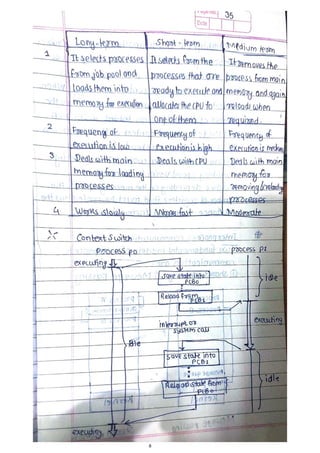 35
Date
Long-term Short-term Medium term
1 It selects processes It selects from the It removes the
from job pool and processes that are process from main
loads them into ready to execute and memory and again
memory for execution allocate the CPU to reload when
one of them required.
2 Frequency of Frequency of Frequency of
execution is low execution is high execution is medium
3 Deals with main Deals with CPU Deals with main
memory for loading memory for
processes removing & reloading
processes
4 Works slowly Works fast Moderate
Context Switch
process P0 process P1
executing
save state into
PCB0
idle
Reload from
PCB1
interrupt or executing
system call
Idle
save state into
PCB1
idle
Reload state from
PCB0
executing